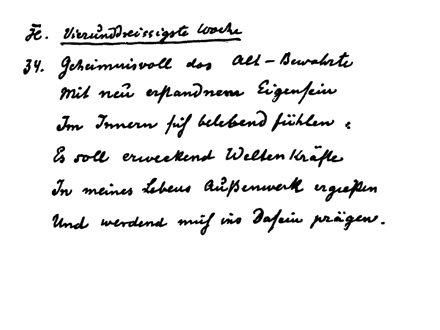 H. Vierunddreissigste Woche
34. Geheimnisvoll das Alt-Bewahrte
Mit neu erstandnem Eigensein
Im Innern sich belebend fühlen:
Es soll erweckend Weltenkräfte
In meines Lebens Außenwerk ergießen
Und werdend mich ins Dasein prägen.